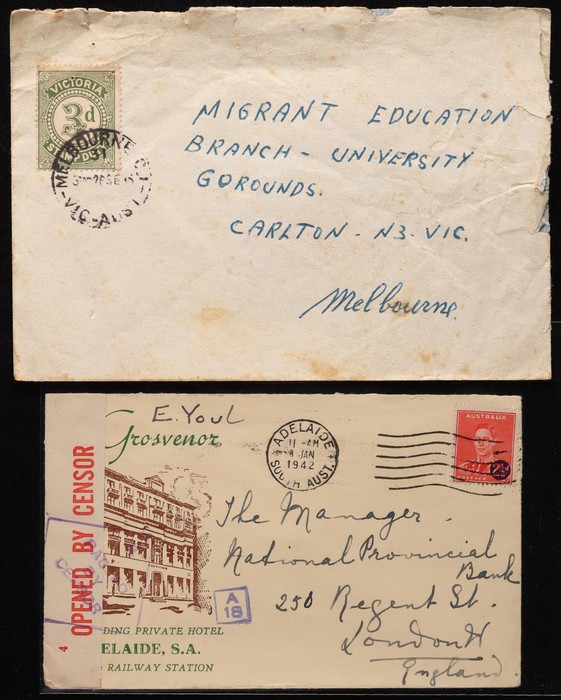 VICTORIA
3d
STAMP DUTY
MELBOURNE
VIC-AUST
MIGRANT EDUCATION
BRANCH - UNIVERSITY
GOROUNDS.
CARLTON - N3. VIC.
Melbourne.
E. Youl
Grosvenor
ADELAIDE
11 - AM
8 JAN
1942
SOUTH AUST.
AUSTRALIA
POSTAGE
4 OPENED BY CENSOR
PASSED
BY
CENSOR
A
18
The Manager.
National Provincial
Bank
250 Regent St.
London W
England.
DING PRIVATE HOTEL
ELAIDE, S.A.
RAILWAY STATION